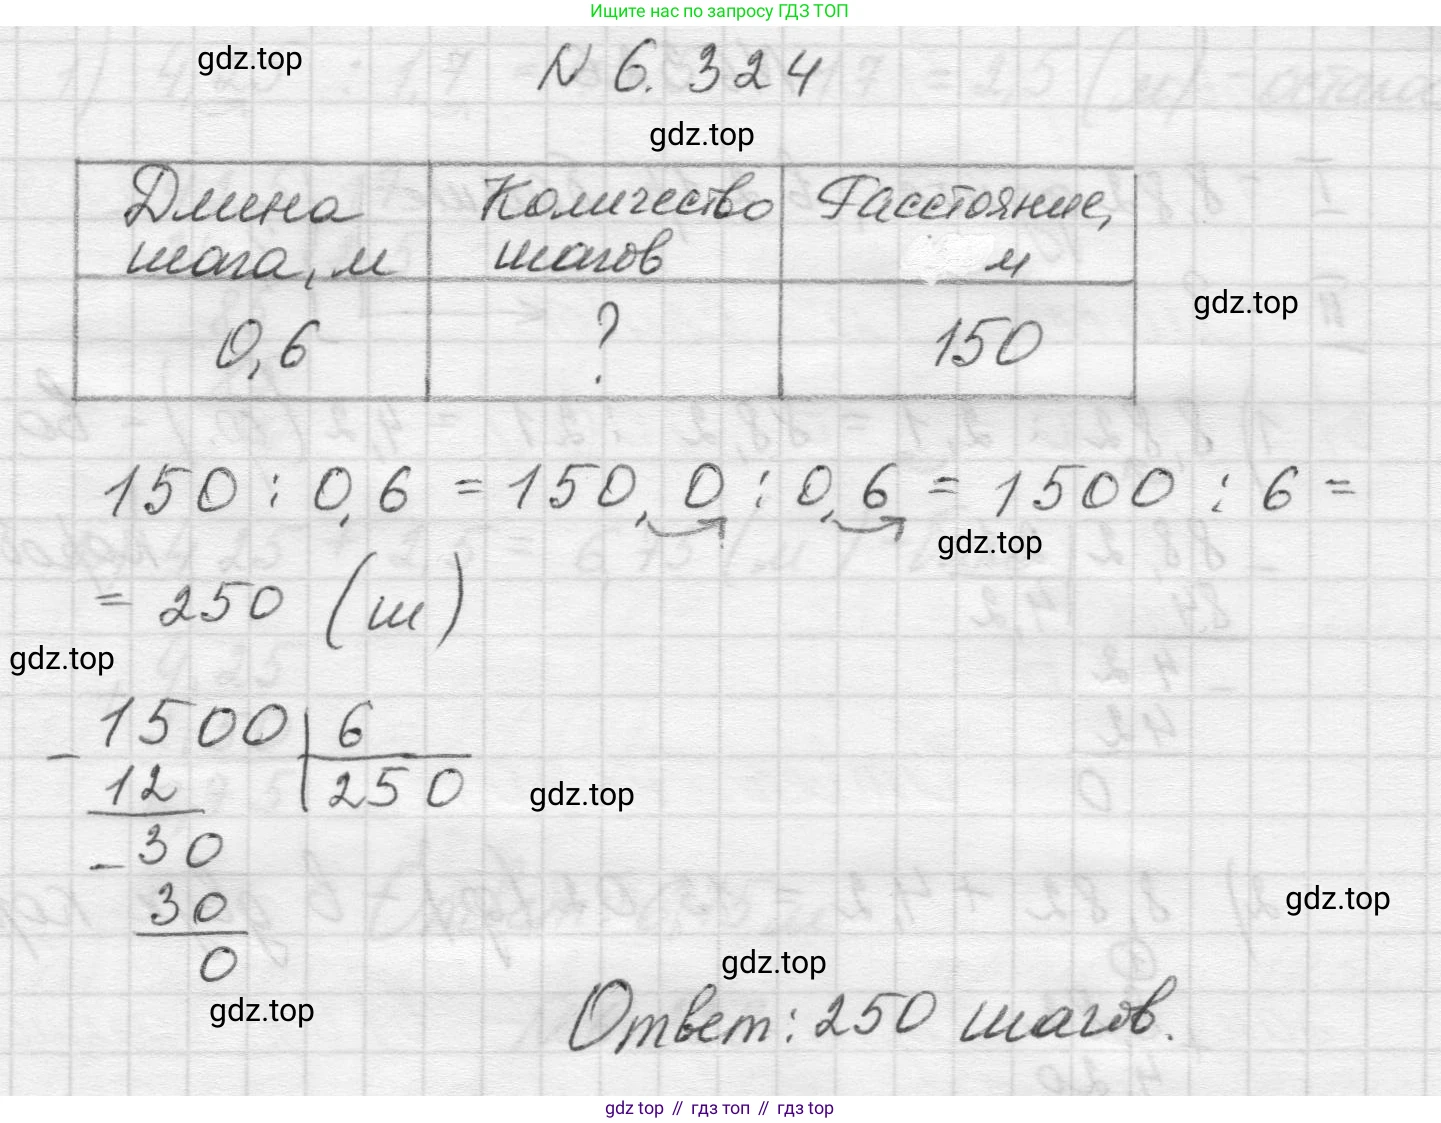 Ищите нас по запросу ГДЗ ТОП
gdz.top
N 6.324
gdz.top
Длина шага, м
Количество шагов
Расстояние, м
0,6
?
150
gdz.top
150 : 0,6 = 150,0 : 0,6 = 1500 : 6 =
gdz.top
= 250 (ш)
gdz.top
1500 | 6
- 12 | 250
gdz.top
- 30
30
gdz.top
0
gdz.top
gdz.top
Ответ: 250 шагов.
gdz top // гдз топ // гдз top